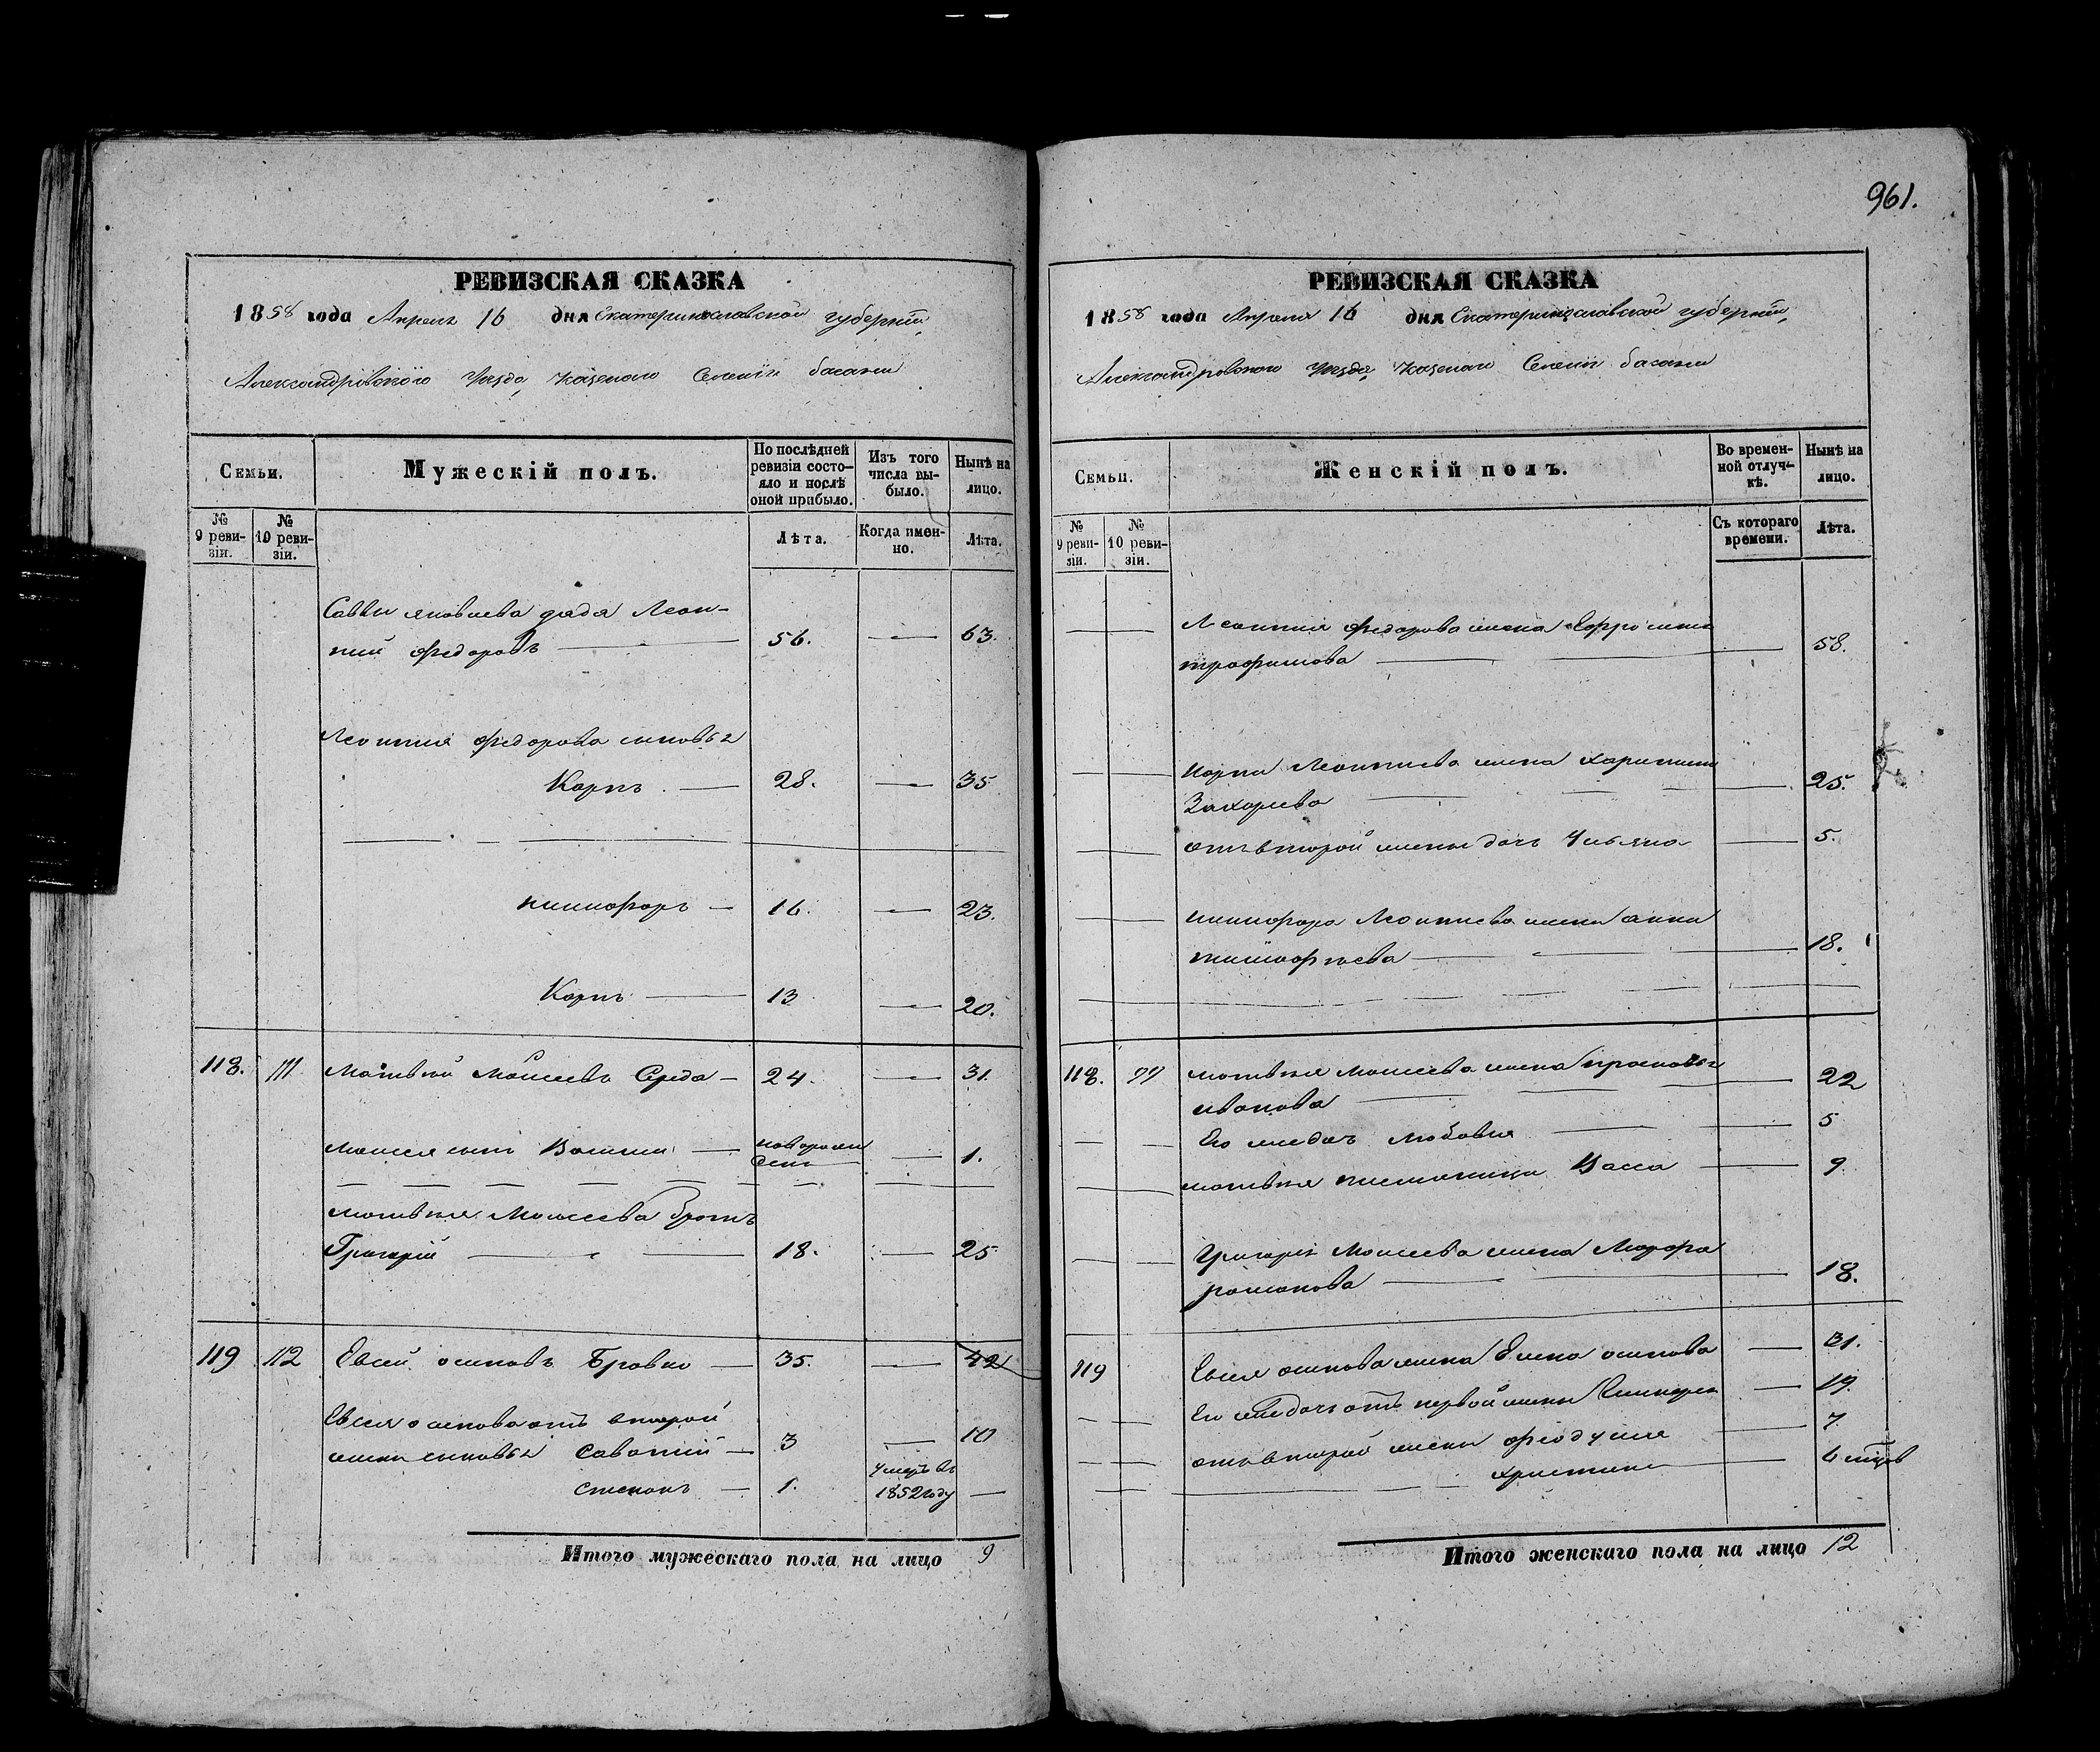 961.
РЕВИЗСКАЯ СКАЗКА
1858 года Апреля 16 дня Екатеринославской губерніи,
Александровского Уезда, казеного Селенія басани
Семьи.
Мужескій полъ.
По послѣдней ревизіи состояло и послѣ оной прибыло.
Изъ того числа выбыло.
Нынѣ на лицо.
№ 9 ревизіи.
№ 10 ревизіи.
Лѣта.
Когда именно.
Лѣта.
Саввы яковлева дядя Леон-
тий Федоровъ 56. 63.
Леонтия Федорова сыновья
Карпъ 28. 35
никифоръ 16. 23.
Карпъ 13 20.
118. 111 Матвей Моисеевъ Середа 24. 31.
новорожден 1.
Матвея Моисеева братъ
Григорій 18. 25
119 112 Евсей осиповъ Бровко 35. 42
Евсея осипова отъ второй
жены сыновья Саватий 3 10
степанъ 1. умеръ въ 1852 году
Итого мужескаго пола на лицо 9
РЕВИЗСКАЯ СКАЗКА
1858 года Апреля 16 дня Екатеринославской губерніи,
Александровского Уезда, казеного Селенія басани
Семьи.
Женскій полъ.
Во временной отлучкѣ.
Нынѣ на лицо.
№ 9 ревизіи.
№ 10 ревизіи.
Съ котораго времени.
Лѣта.
Леонтия Федорова жена
трофимова 58.
Карпа Леонтиева жена харитина
Захарева 25.
отъ второй жены дочь Ульяна 5.
никифора Леонтиева жена анна
18.
118. матвея Моисеева жена прасковья
иванова 22
Его же дочь Любовья 5
матвея племяница Васса 9
Григорія Моисеева жена Марфа
романова 18.
119 Евсея осипова жена Елена осипова 31.
Его же дочь отъ первой жены 19.
отъ второй жены 7
христина
Итого женскаго пола на лицо 12